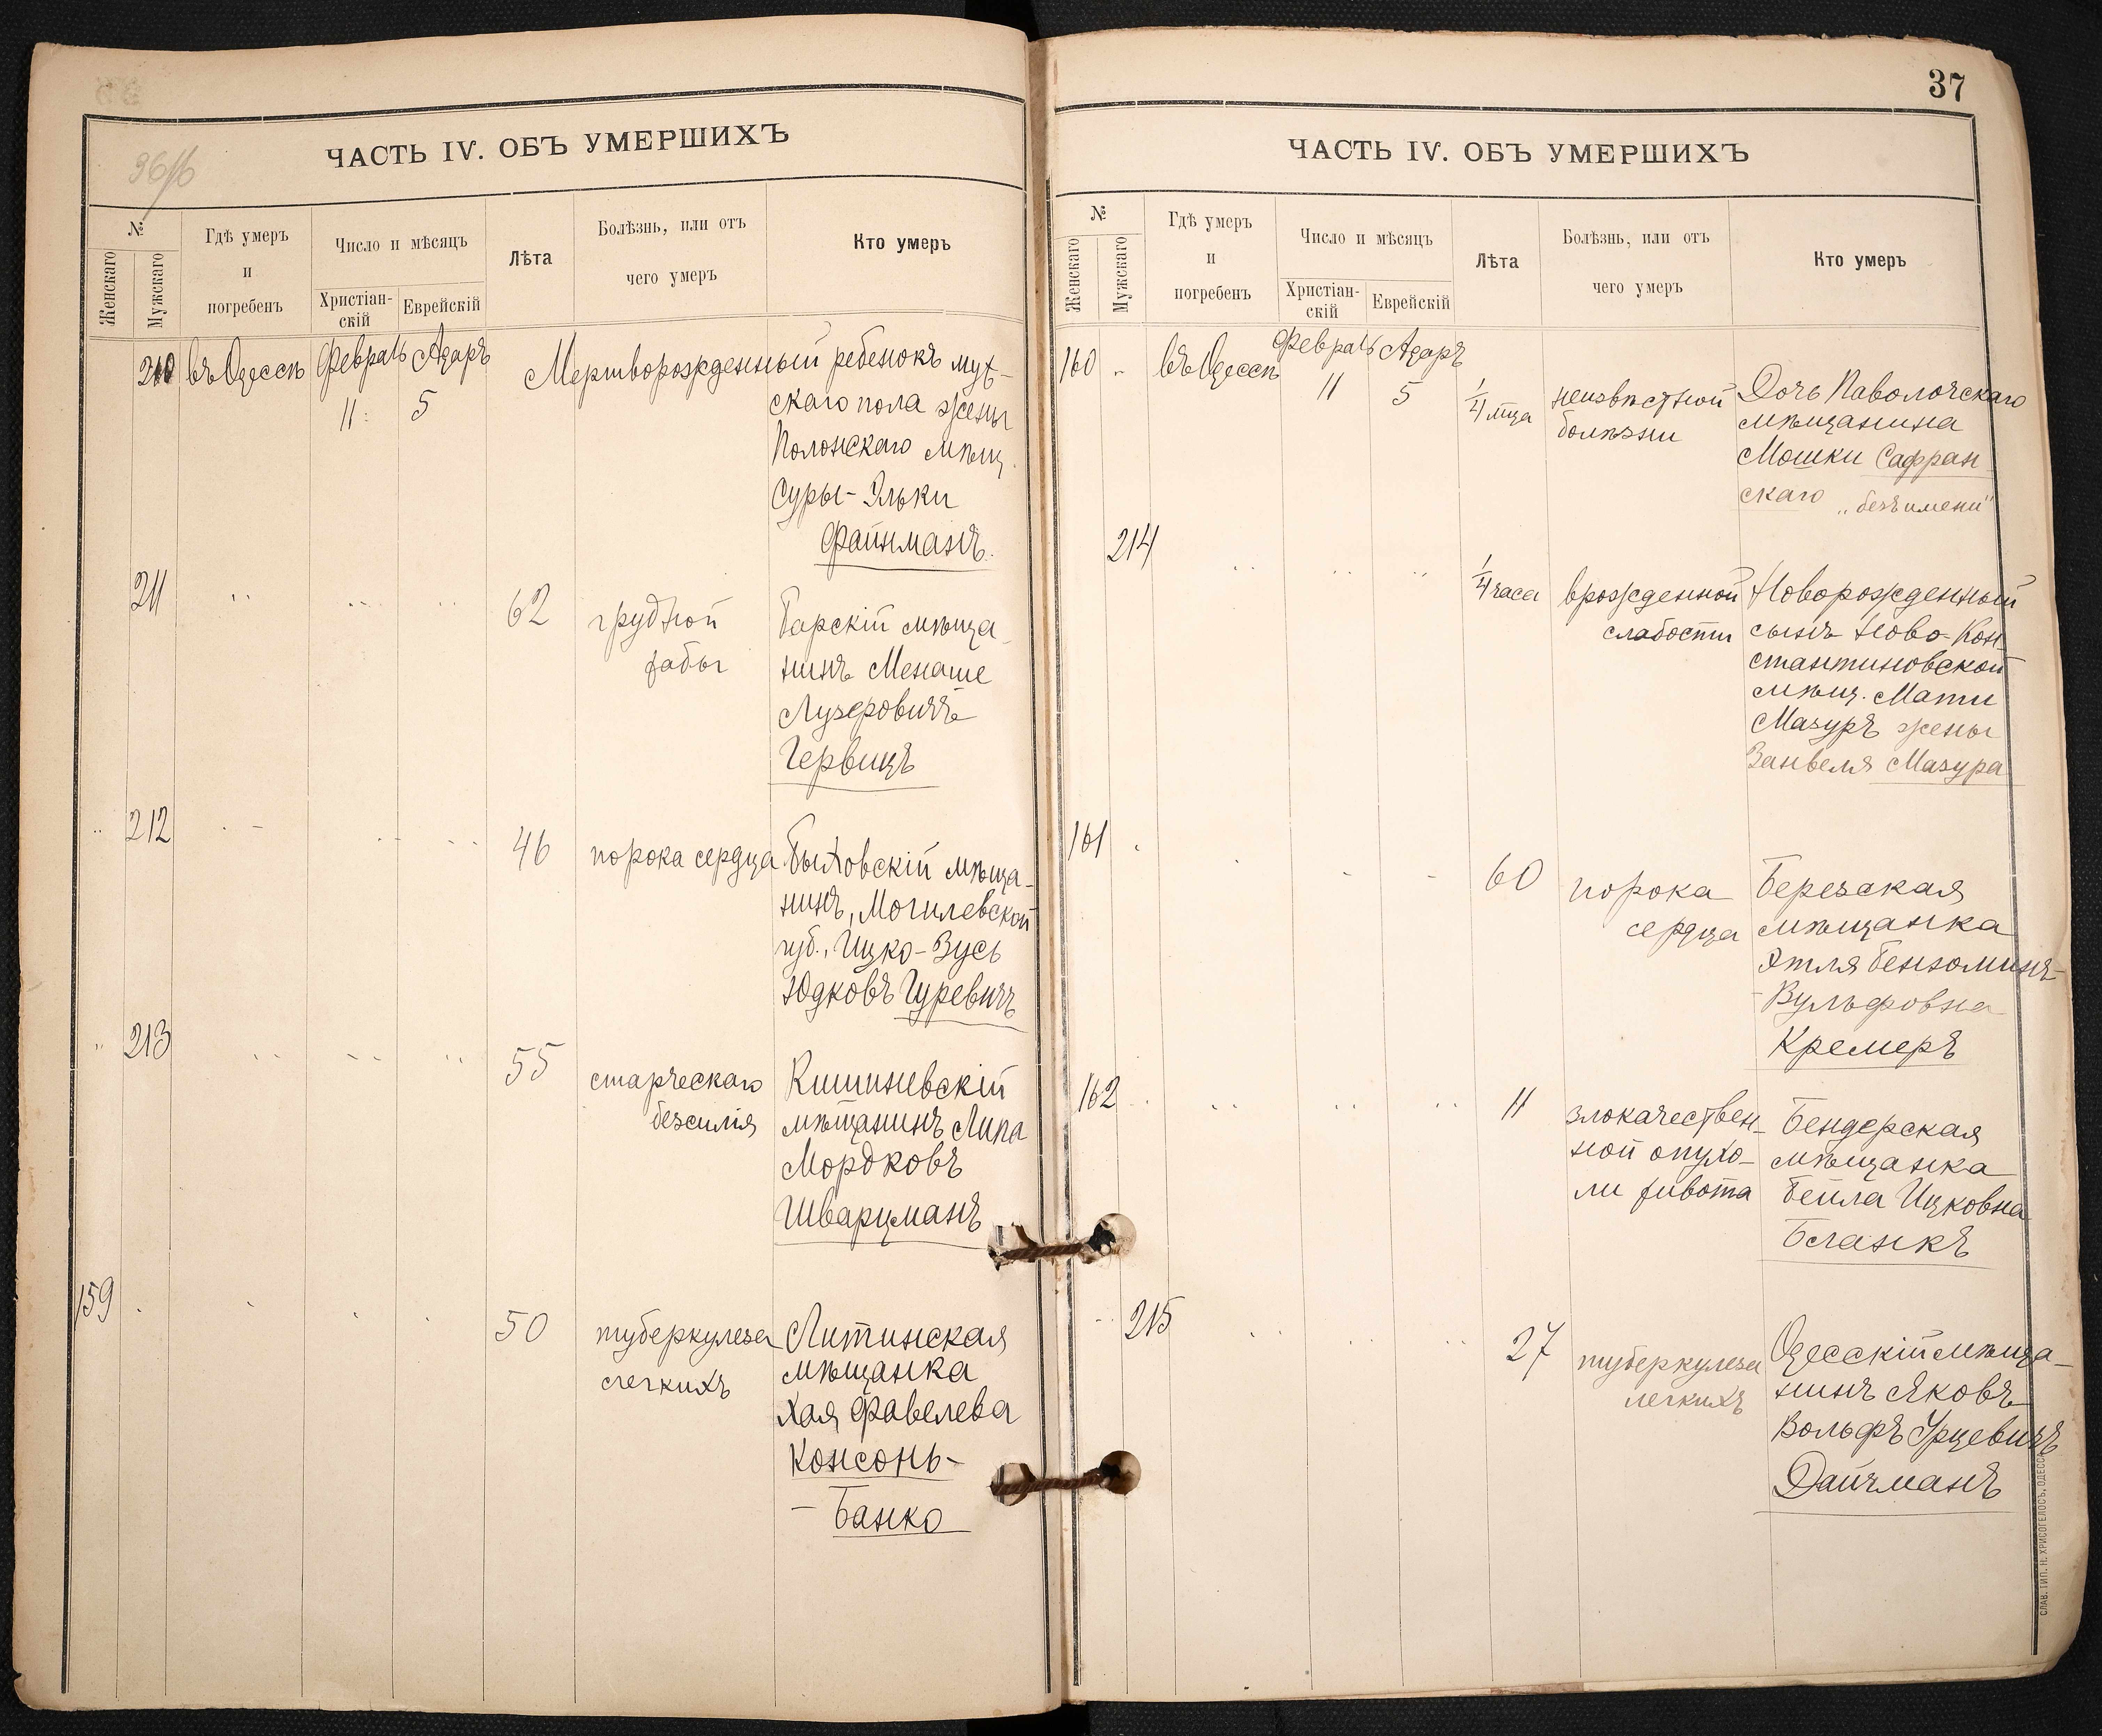 36/б
ЧАСТЬ IV. ОБЪ УМЕРШИХЪ
№
Женскаго
Мужскаго
Гдѣ умеръ
и
погребенъ
Число и мѣсяцъ
Христіан-
скій
Еврейскій
Лѣта
Болѣзнь, или отъ
чего умеръ
Кто умеръ
210 въ Одессѣ Февраль Адаръ Мертворожденный ребенокъ муж-
11 5 скаго пола жены
Полонскаго мѣщ.
Суры-Эльки
Файнманъ.
211 62 грудной Барскій мѣща-
жабы нинъ Менаше
Лузеровичъ
Гервицъ
212 46 порока сердца Быховскій мѣща-
нинъ, Могилевской
губ., Ицко-Зусь
Юдковъ Гуревичъ
213 55 старческаго Кишиневскій
безсилія мѣщанинъ Липа
Мордковъ
Шварцманъ
159 50 туберкулеза Литинская
легкихъ мѣщанка
Хая Фавелева
Консонъ-
- Банко
37
ЧАСТЬ IV. ОБЪ УМЕРШИХЪ
№
Женскаго
Мужскаго
Гдѣ умеръ
и
погребенъ
Число и мѣсяцъ
Христіан-
скій
Еврейскій
Лѣта
Болѣзнь, или отъ
чего умеръ
Кто умеръ
160 въ Одессѣ Февраль Адаръ
11 5 1/4 м-ца неизвѣстной Дочь Паволочскаго
болѣзни мѣщанина
Мошки Сафран-
скаго „безъ имени"
214 1/4 часа врожденной Новорожденный
слабости сынъ Ново-Кон-
стантиновской
мѣщ. Мати
Мазуръ жены
Занвеля Мазура
161 60 порока Березская
сердца мѣщанка
Этля Бенюминъ-
Вульфовна
Кремеръ
162 11 злокачествен- Бендерская
ной опухо- мѣщанка
ли живота Бейла Ицковна
Бланкъ
215 27 туберкулеза Одесскій мѣща-
легкихъ нинъ Яковъ
Вольфъ Урцевичъ
Дайчманъ
СЛАВ. ТИП. Н. ХРИСОГЕЛОСЪ, ОДЕССА